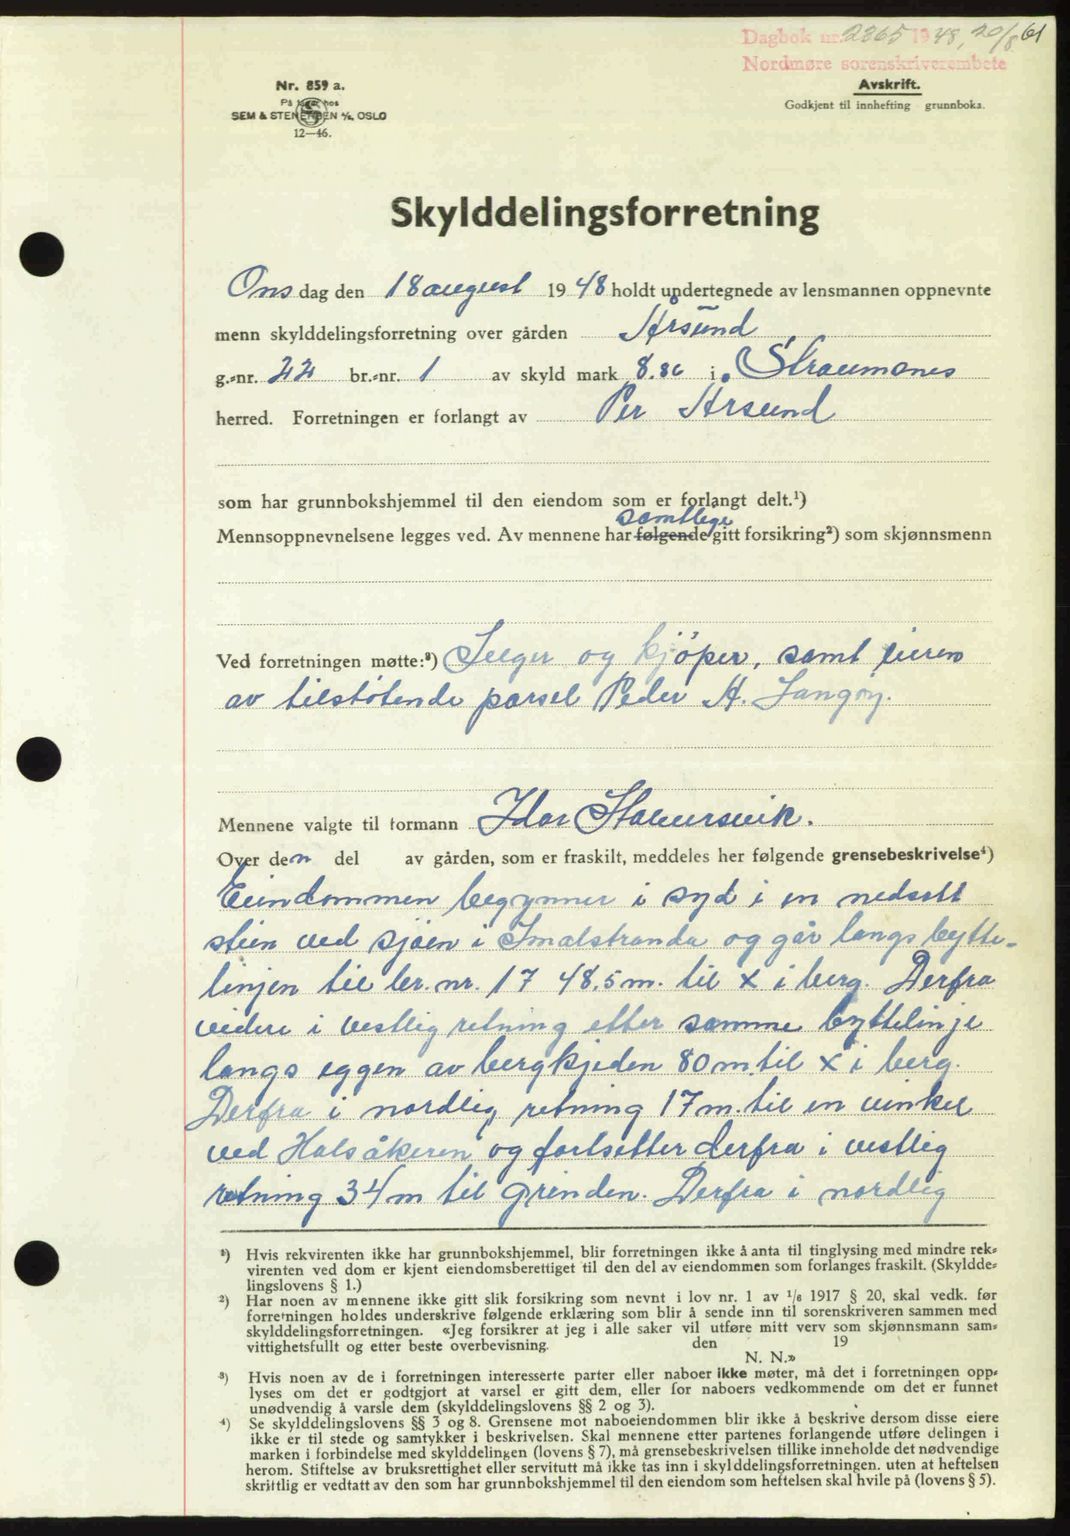 Dagbok nr. 2365 1948, 20/8 61
Nordmøre sorenskriverembete
Nr. 859 a.
På lager hos
SEM & STENERSEN A/S, OSLO
12—46.
Avskrift.
Godkjent til innhefting grunnboka.
Skylddelingsforretning
Ons dag den 18 august 1948 holdt undertegnede av lensmannen oppnevnte
menn skylddelingsforretning over gården Årsund
g.-nr. 22 br.-nr. 1 av skyld mark 8.86 i Straumsnes
herred. Forretningen er forlangt av Per Årsund
som har grunnbokshjemmel til den eiendom som er forlangt delt.¹)
samtlege
Mennsoppnevnelsene legges ved. Av mennene har følgende gitt forsikring²) som skjønnsmenn
Ved forretningen møtte:³) Selger og kjöper, samt eieren
av tilstötende parsel Peder H. Langöy.
Mennene valgte til formann Idar Stavnesvik.
Over den del av gården, som er fraskilt, meddeles her følgende grensebeskrivelse⁴)
Eiendommen begynner i syd i en nedsatt
stein ved sjöen i Smalstranda og går langs bytte-
linjen til br. nr. 17 48,5 m. til X i berg. Derfra
videre i vestlig retning etter samme byttelinje
langs eggen av bergkjeden 80 m. til X i berg.
Derfra i nordlig retning 17 m. til en vinkel
ved Halsåkeren og fortsetter derfra i vestlig
retning 34 m til grinden. Derfra i nordlig
¹) Hvis rekvirenten ikke har grunnbokshjemmel, blir forretningen ikke å anta til tinglysing med mindre rek-
virenten ved dom er kjent eiendomsberettiget til den del av eiendommen som forlanges fraskilt. (Skyldde-
lingslovens § 1.)
²) Har noen av mennene ikke gitt slik forsikring som nevnt i lov nr. 1 av 1/6 1917 § 20, skal vedk. før
forretningen holdes underskrive følgende erklæring som blir å sende inn til sorenskriveren sammen med
skylddelingsforretningen. «Jeg forsikrer at jeg i alle saker vil utføre mitt verv som skjønnsmann sam-
vittighetsfullt og etter beste overbevisning. den 19
N. N.»
³) Hvis noen av de i forretningen interesserte parter eller naboer ikke møter, må det i forretningen opp-
lyses om det er godtgjort at varsel er gitt dem, eller for naboers vedkommende om det er funnet
unødvendig å varsle dem (skylddelingslovens §§ 2 og 3).
⁴) Se skylddelingslovens §§ 3 og 8. Grensene mot naboeiendommen blir ikke å beskrive dersom disse eiere
ikke er til stede og samtykker i beskrivelsen. Skal mennene etter partenes forlangende utføre delingen i
marken i forbindelse med skylddelingen (lovens § 7), må grensebeskrivelsen tillike inneholde det nødvendige
herom. Stiftelse av bruksrettighet eller servitutt må ikke tas inn i skylddelingsforretningen. uten at heftelsen
skriftlig er vedtatt av den som har grunnbokshjemmel til den eiendom som heftelsen skal hvile på (lovens § 5).